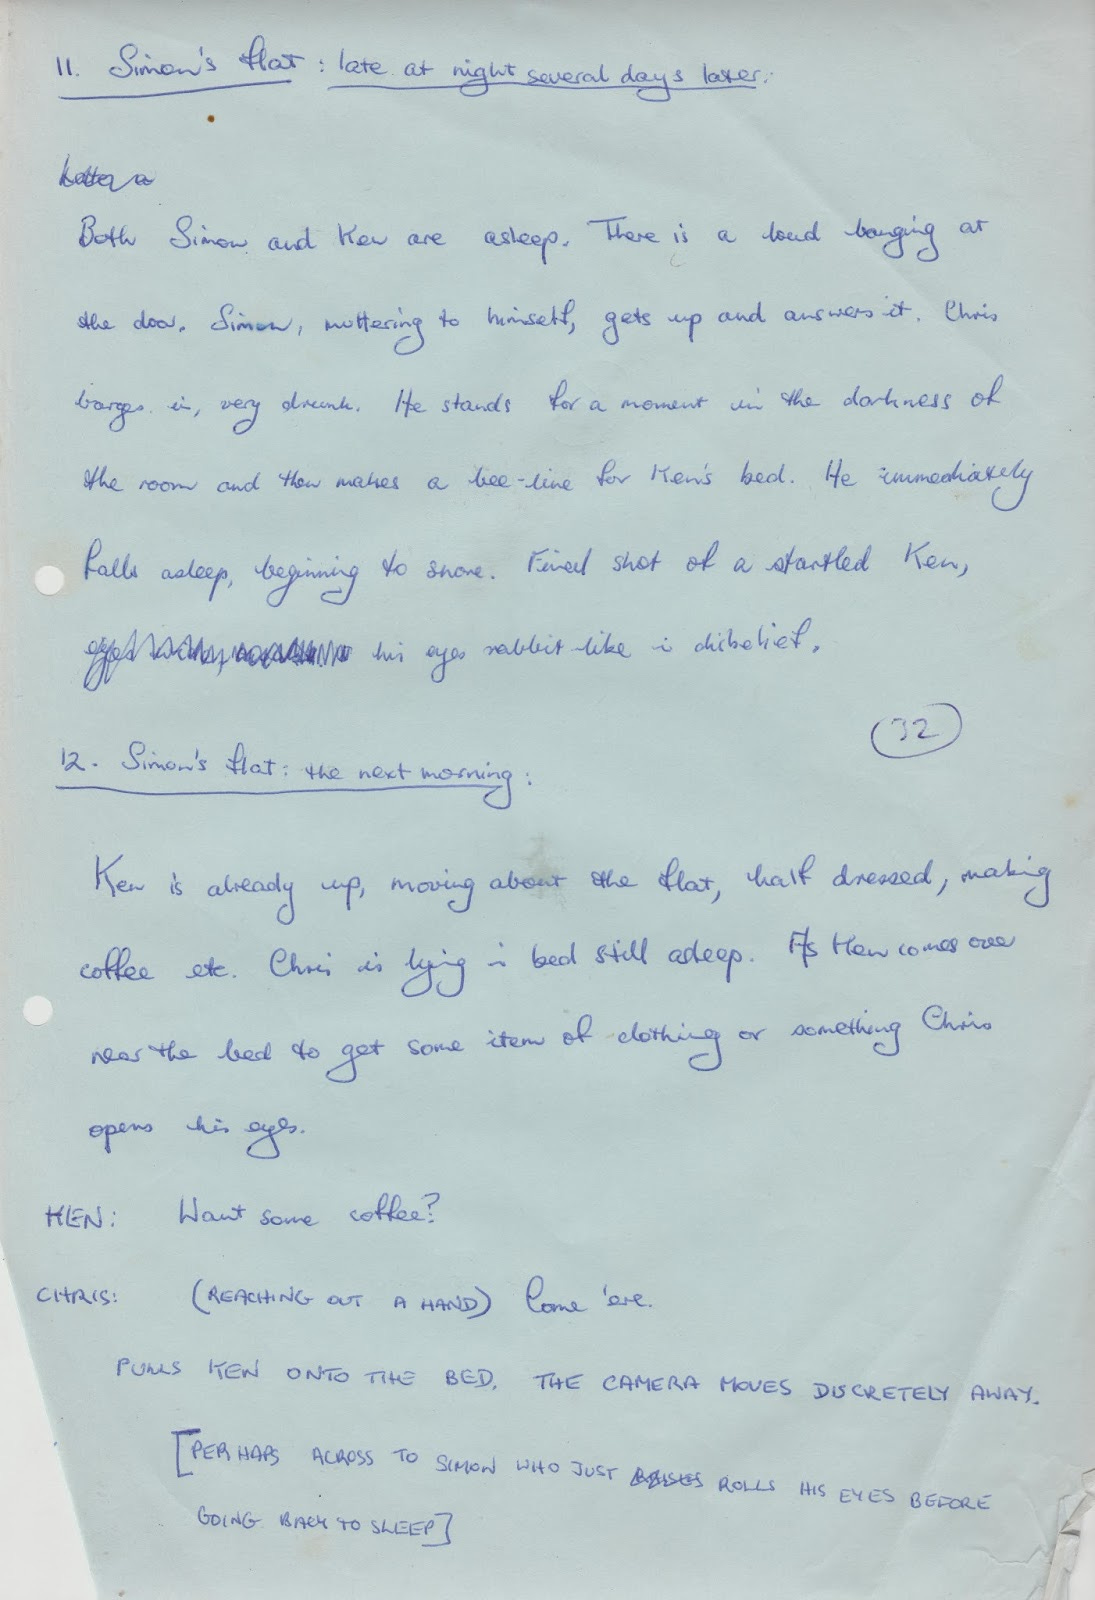 11. Simon's flat: late at night several days later:
Both Simon and Ken are asleep. There is a loud banging at
the door. Simon, muttering to himself, gets up and answers it. Chris
barges in, very drunk. He stands for a moment in the darkness of
the room and then makes a bee-line for Ken's bed. He immediately
falls asleep, beginning to snore. Final shot of a startled Ken,
his eyes rabbit-like in disbelief.
32
12. Simon's flat: the next morning:
Ken is already up, moving about the flat, half dressed, making
coffee etc. Chris is lying in bed still asleep. As Ken comes over
near the bed to get some item of clothing or something Chris
opens his eyes.
KEN: Want some coffee?
CHRIS: (REACHING OUT A HAND) Come 'ere.
PULLS KEN ONTO THE BED. THE CAMERA MOVES DISCRETELY AWAY.
[PERHAPS ACROSS TO SIMON WHO JUST ROLLS HIS EYES BEFORE
GOING BACK TO SLEEP]